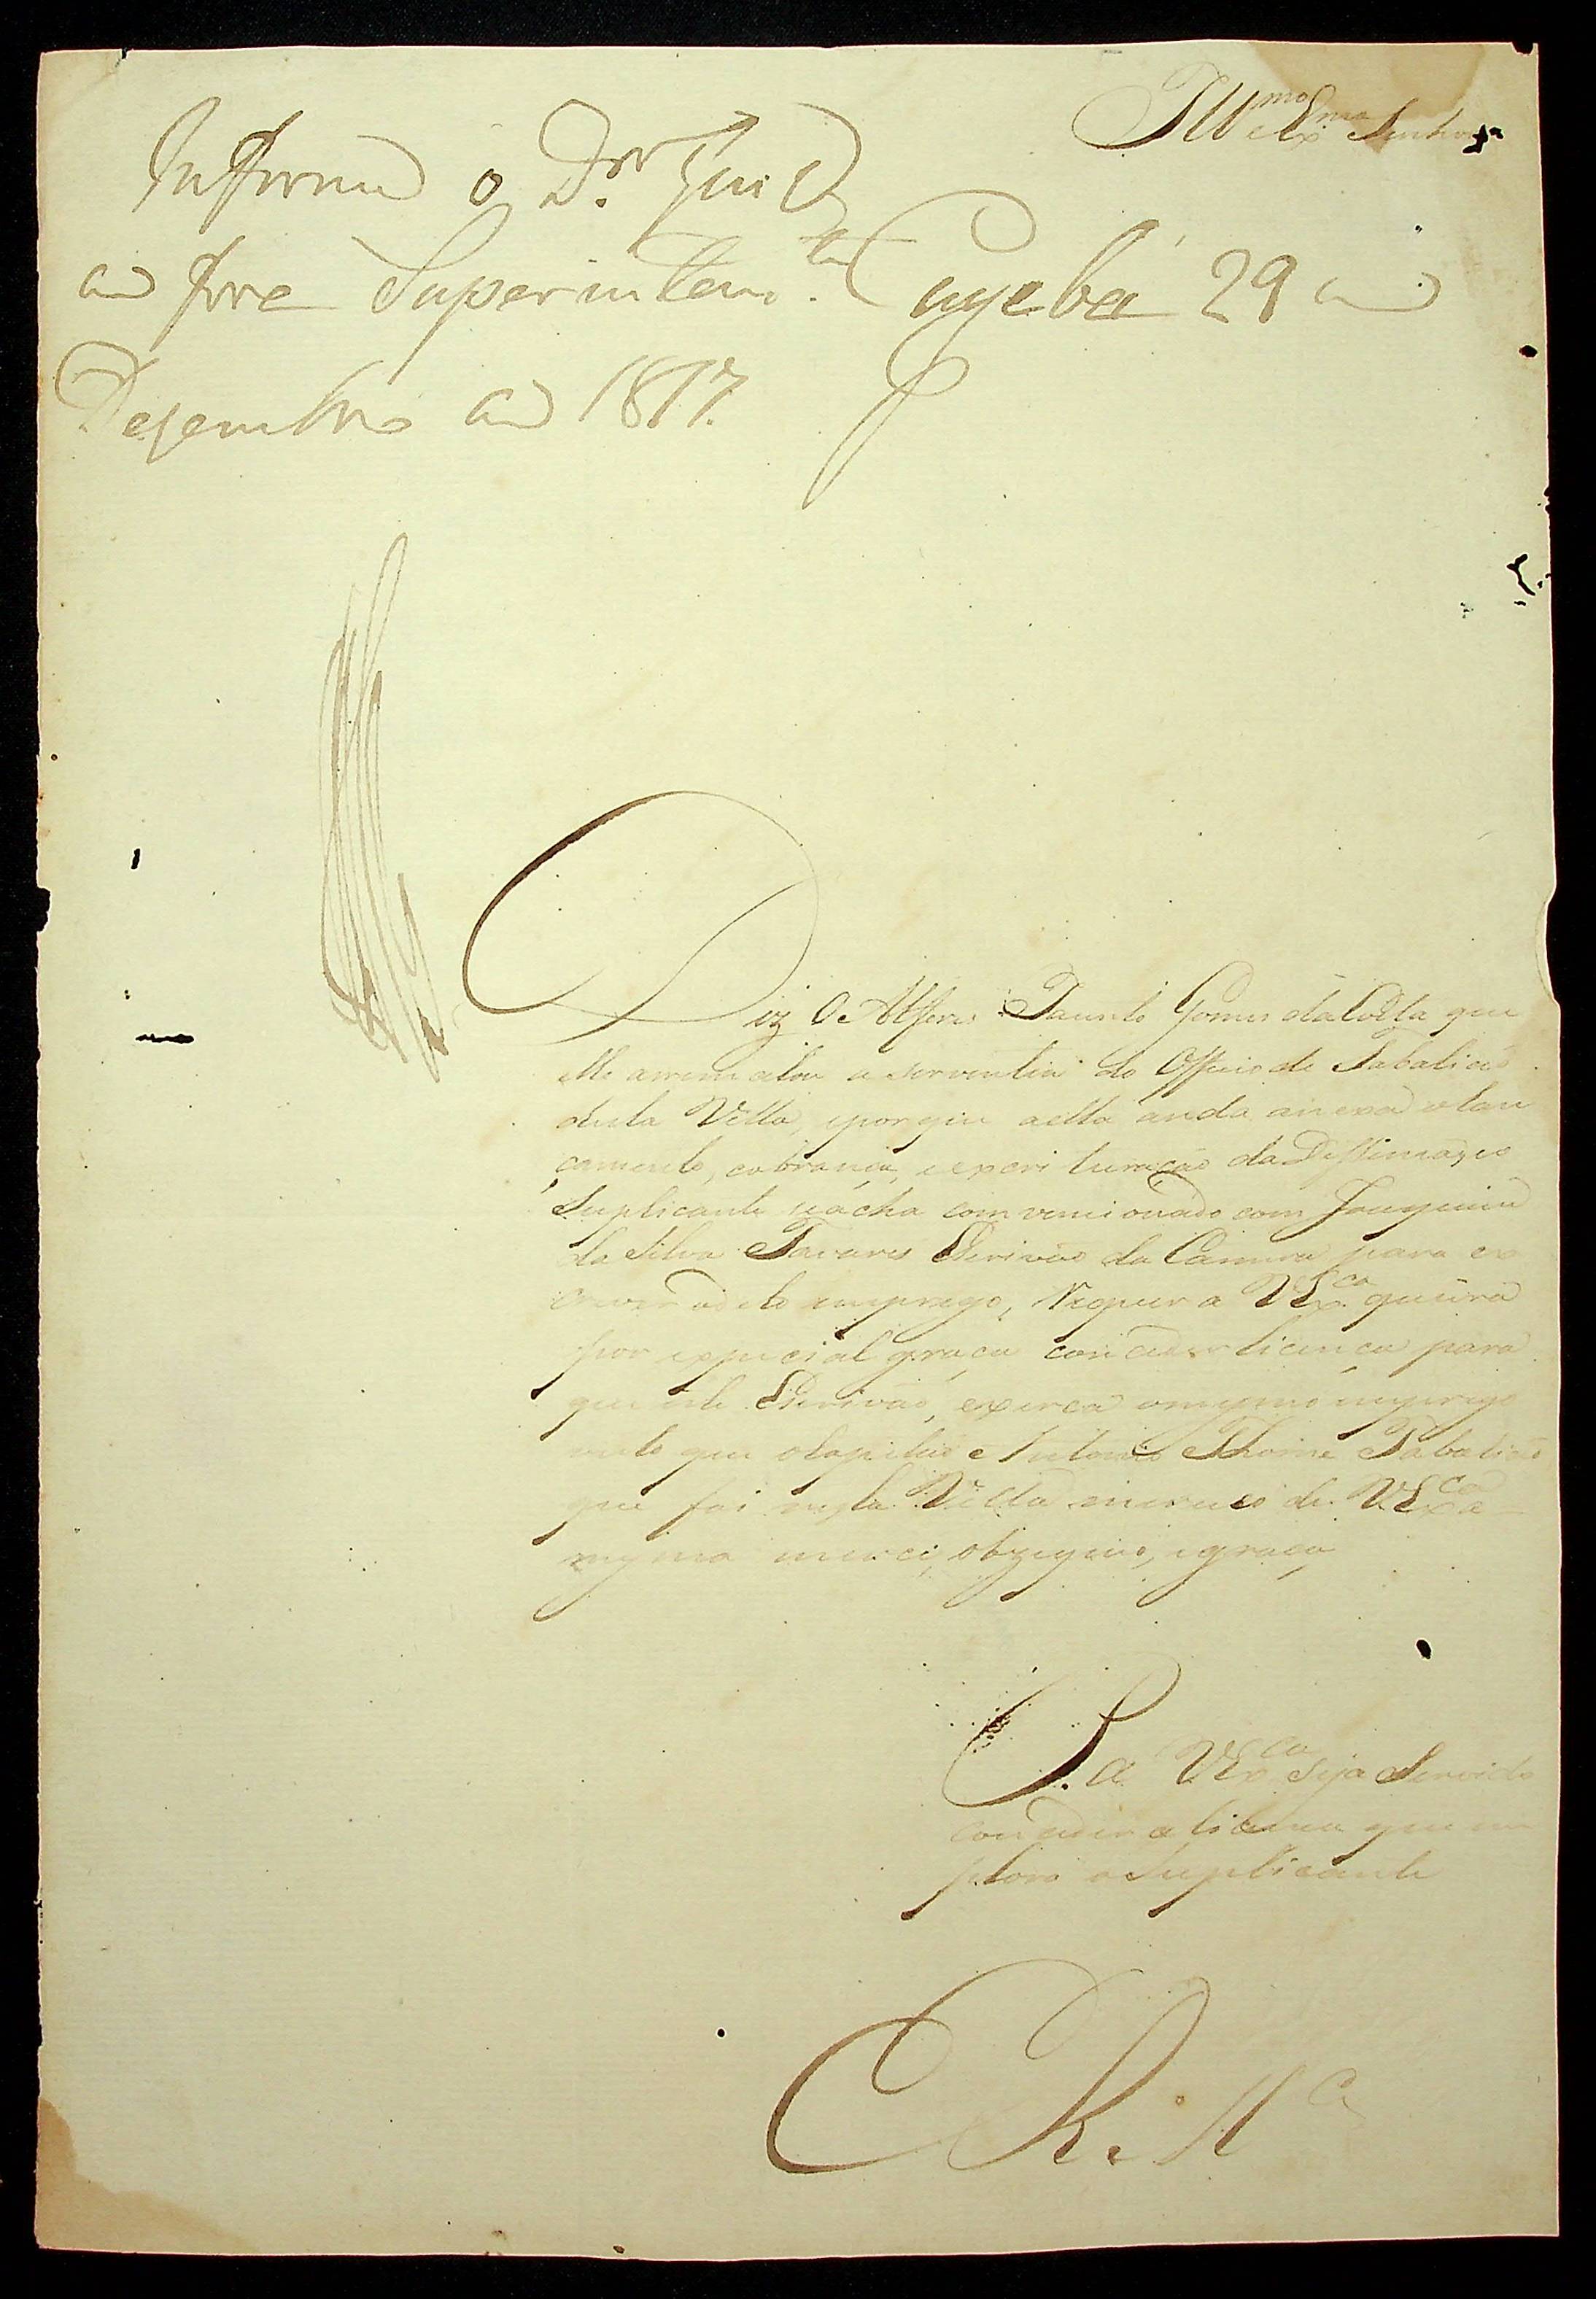 Ill.mo e Ex.mo Senhor
Informe o D.or Juiz
de fora Superinten.te Cuyabá 29 de
Dezembro de 1817.
Diz o Alferes Fausto Gomes da Costa que
elle arrematou a serventia do Officio de Tabaliaõ
desta Villa, e porque a ella anda anexa o lan
çamento, cobrança, e escrituração da Dessima, e o
Suplicante se ácha comvencionado com Joaquim
da Silva Tavares Escrivão da Camera para ex
crever o dito emprego, Requer a V Ex.ca queira
por especial graça conceder licença para
que este Escrivaõ, exerça o mesmo imprego
visto que o Capitaõ Antonio Thome Tabaliaõ
que foi nesta Villa mereceo de V Ex.ca a
mesma merce, obzequio, e graça
P. a V Ex.ca seja Servido
conceder a licença que im
plora o Suplicante
E R. M.ce